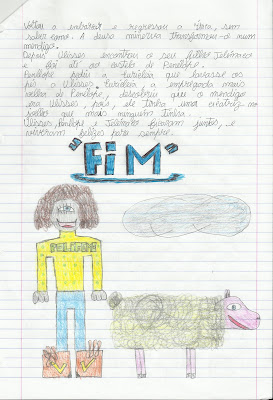 Voltou a embarcar e regressou a Ítaca, sem
saber como. A deusa minerva transformou-o num
mendigo.
Depois Ulisses encontrou o seu filho Telémaco
e foi até ao castelo de Penélope.
Penélope pediu a Euricleia que lavasse os
pés a Ulisses. Euricleia, a empregada mais
velha de Penélope, descobriu que o mendigo
era Ulisses, pois ele tinha uma cicatriz no
joelho que mais ninguém tinha.
Ulisses, Penélope e Telémaco ficaram juntos, e
viveram felizes para sempre.
"FIM"